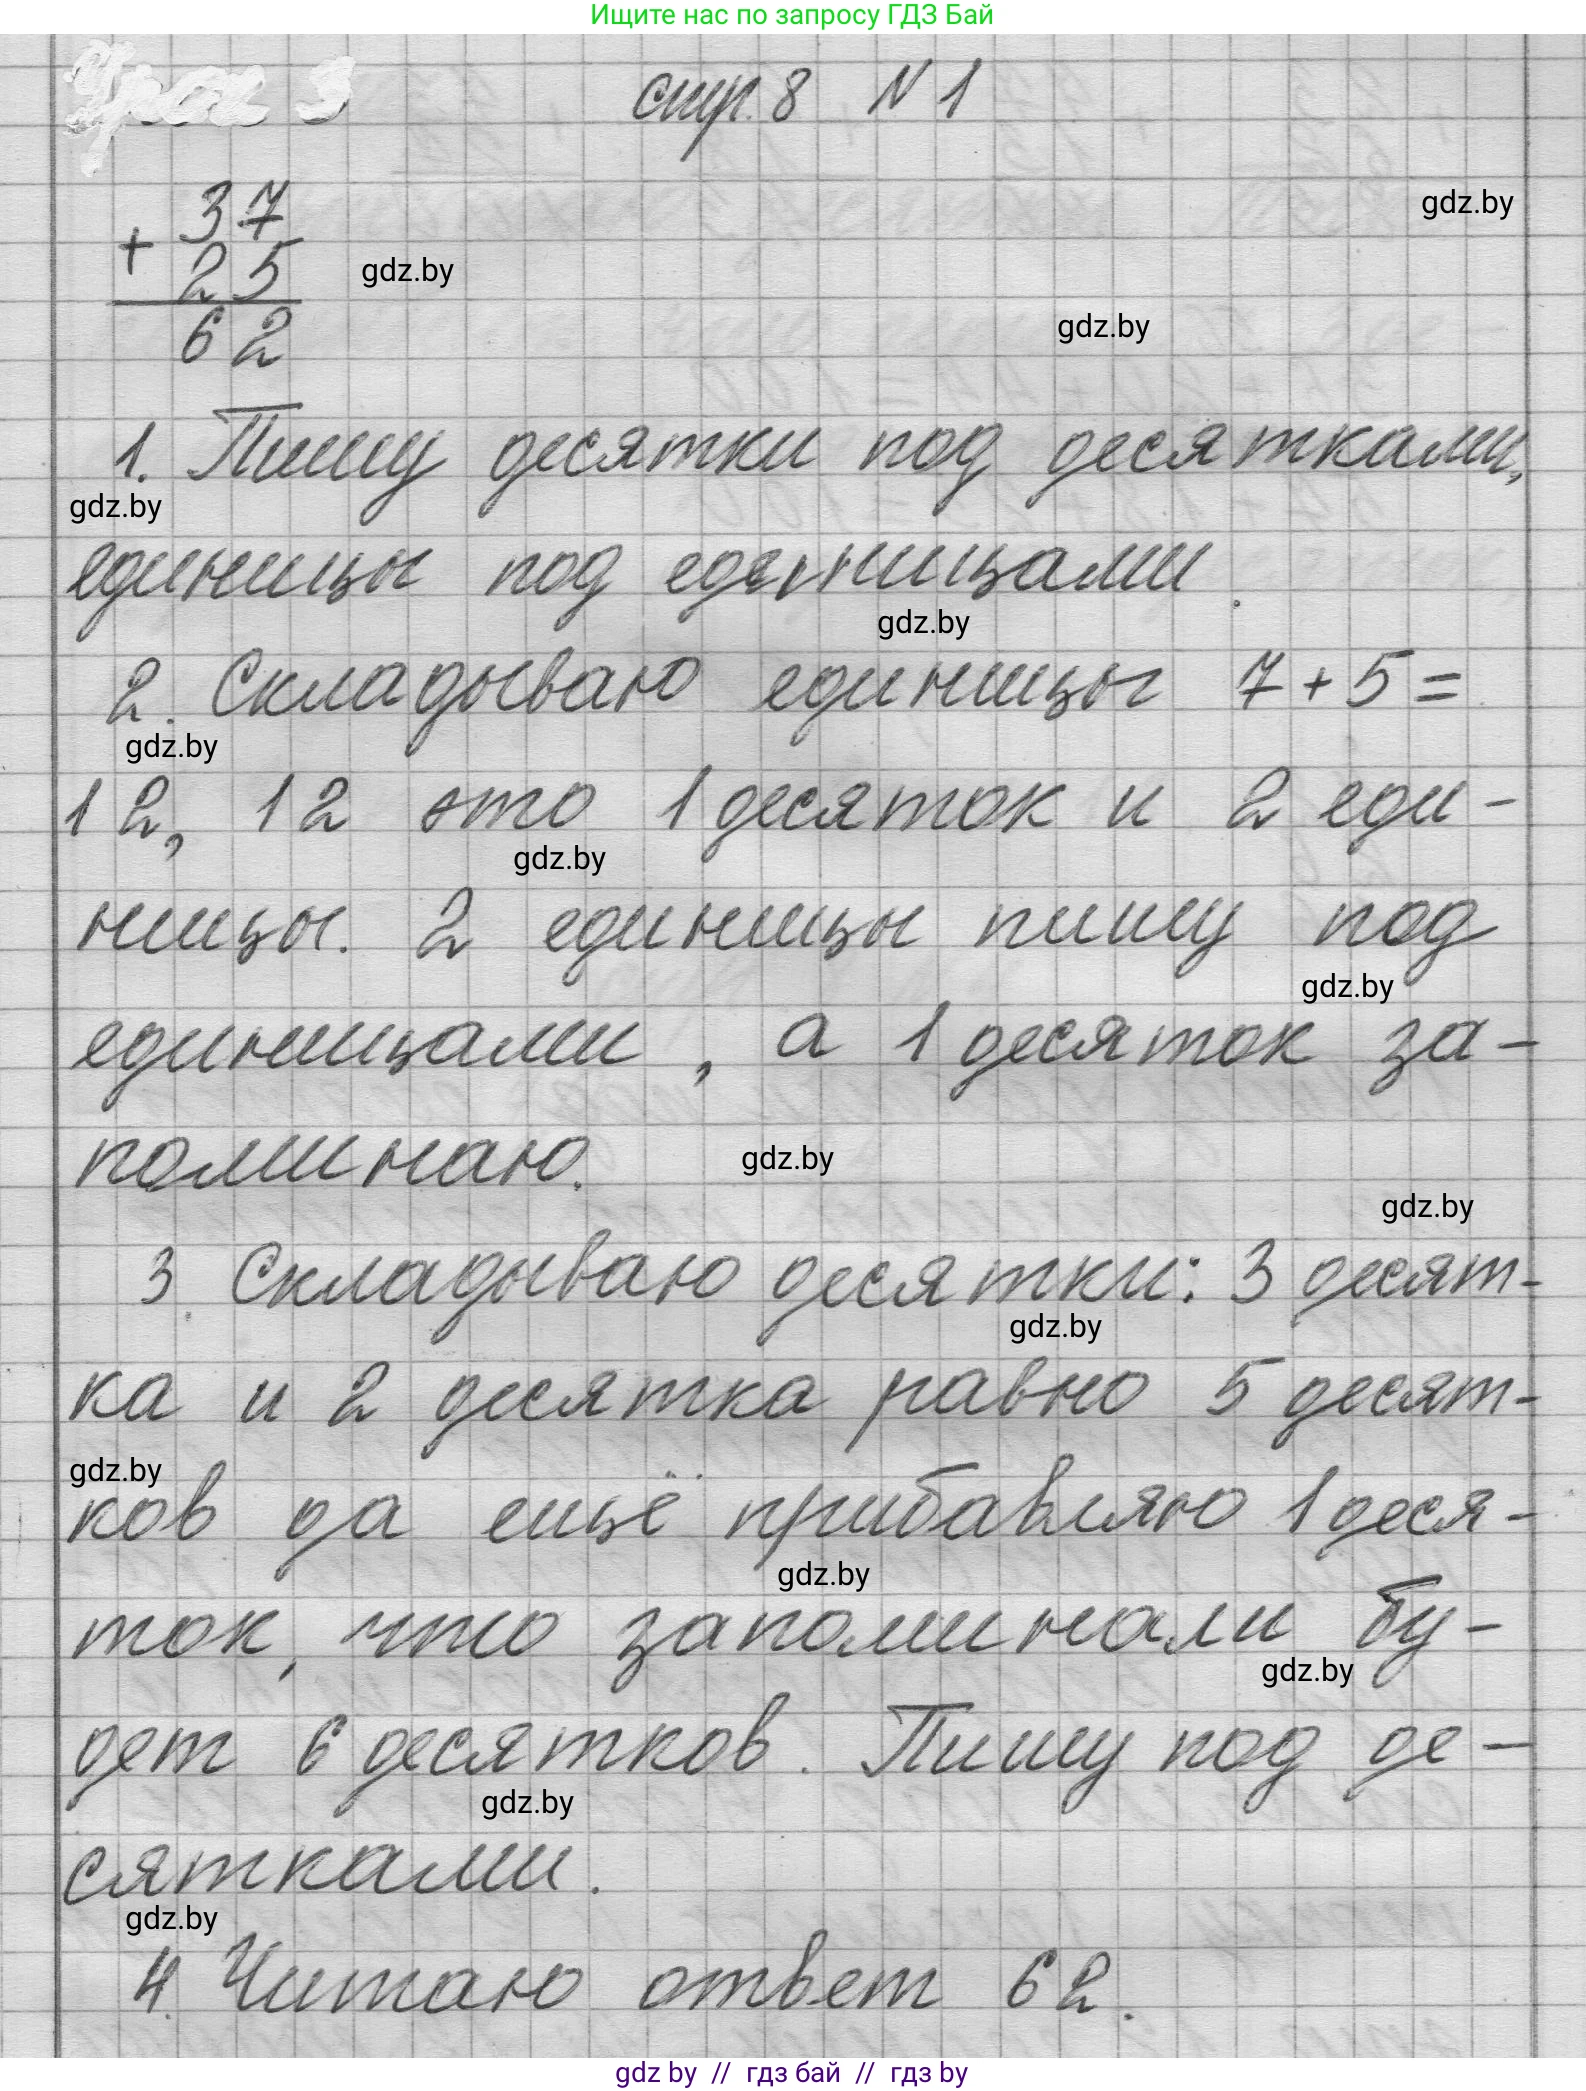 Ищите нас по запросу ГДЗ Бай
Урок 3 стр. 8 N 1
gdz.by
37
+ 25
gdz.by
62
gdz.by
1. Пишу десятки под десятками,
gdz.by
единицы под единицами.
gdz.by
2. Складываю единицы 7+5=
gdz.by
12, 12 это 1 десяток и 2 еди-
gdz.by
ницы. 2 единицы пишу под
gdz.by
единицами, а 1 десяток за-
поминаю.
gdz.by
gdz.by
3. Складываю десятки: 3 десят-
gdz.by
ка и 2 десятка равно 5 десят-
gdz.by
ков да ещё прибавляю 1 деся-
gdz.by
ток, что запоминали бу-
gdz.by
дет 6 десятков. Пишу под де-
gdz.by
сятками.
gdz.by
4. Читаю ответ 62.
gdz by // гдз бай // гдз by